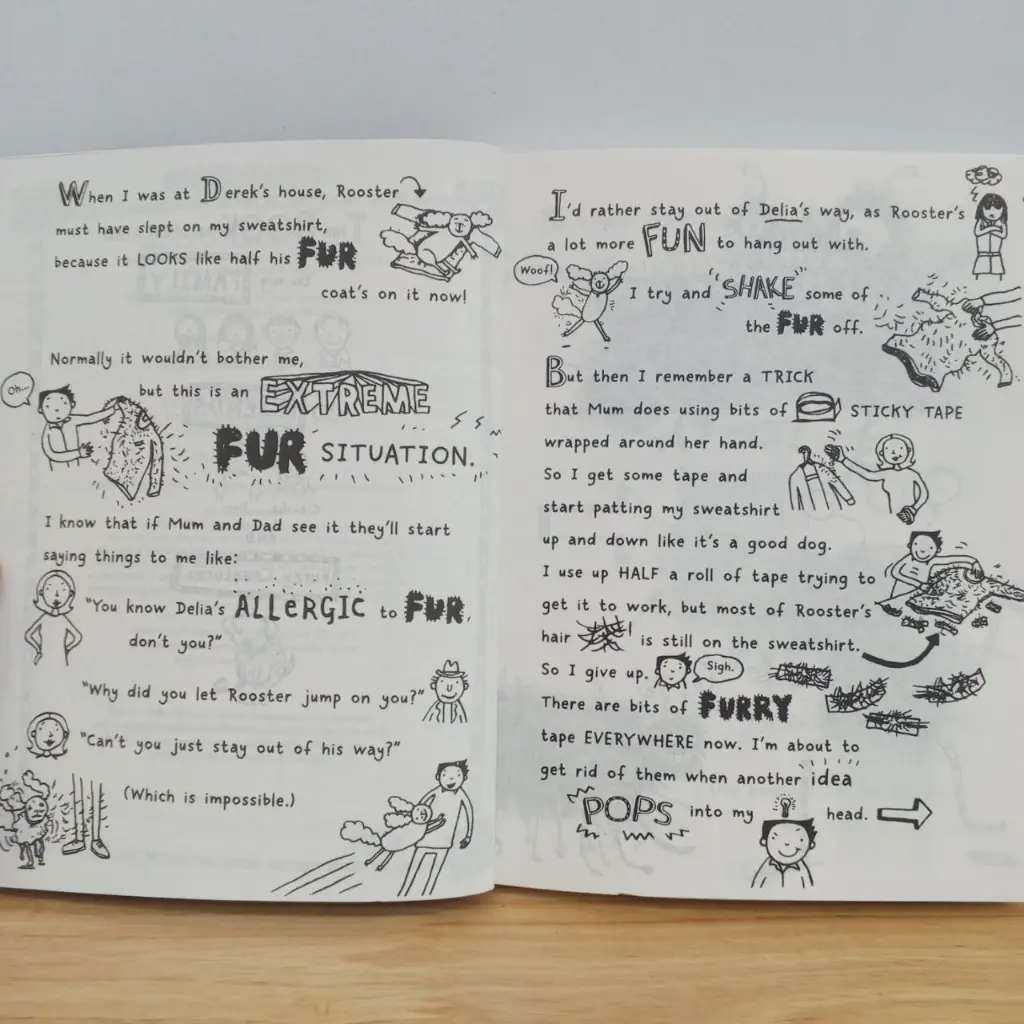 When I was at Derek's house, Rooster
must have slept on my sweatshirt,
because it LOOKS like half his FUR
coat's on it now!
Normally it wouldn't bother me,
Oh...
but this is an EXTREME
FUR SITUATION.
I know that if Mum and Dad see it they'll start
saying things to me like:
"You know Delia's ALLERGIC to FUR,
don't you?"
"Why did you let Rooster jump on you?"
"Can't you just stay out of his way?"
(Which is impossible.)
I'd rather stay out of Delia's way, as Rooster's
a lot more FUN to hang out with.
Woof!
I try and 'SHAKE' some of
the FUR off.
But then I remember a TRICK
that Mum does using bits of STICKY TAPE
wrapped around her hand.
So I get some tape and
start patting my sweatshirt
up and down like it's a good dog.
I use up HALF a roll of tape trying to
get it to work, but most of Rooster's
hair is still on the sweatshirt.
So I give up. Sigh.
There are bits of FURRY
tape EVERYWHERE now. I'm about to
get rid of them when another idea
POPS into my head.